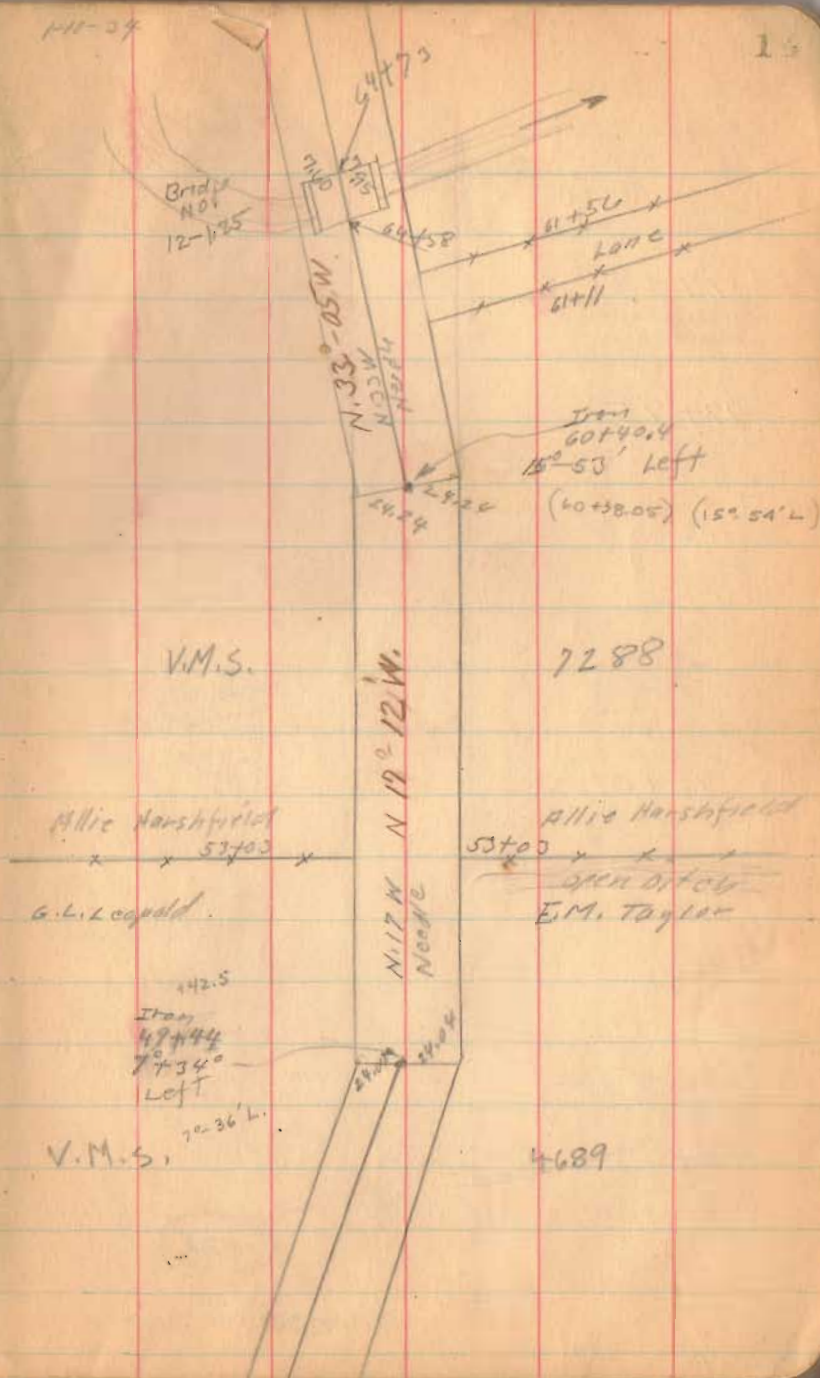 64+73
7.60
7.95
Bridge
No1
12-1.25
64+58
61+56
Lane
61+11
N.33°-05W.
N33W
Needle
Iron
60+40.4
15°-53' Left
(60+38.05) (15°.54'L)
24.24
24.24
V.M.S.
7288
N 17°-12'W.
Allie Harshfield
53+03
Allie Harshfield
53+03
Open Ditch
G.L. Leopald.
E.M. Taylor
N.17 W
Needle
+42.5
Iron
49+44
7°+34°
Left
7°-36'L.
24.04
24.04
V.M.S.
4689